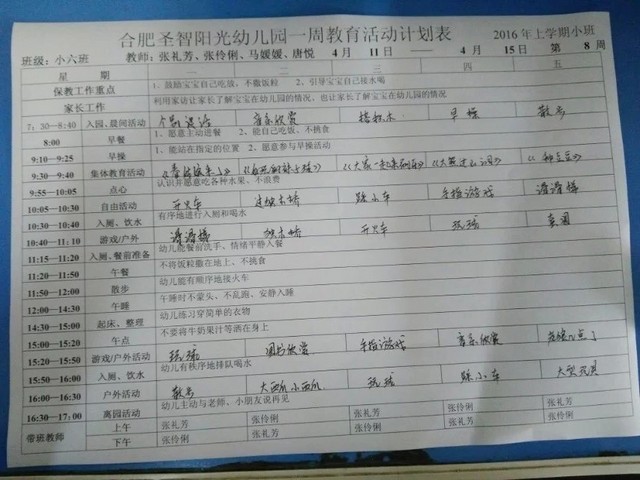 合肥圣智阳光幼儿园一周教育活动计划表 2016年上学期小班
班级：小六班 教师：张礼芳、张伶俐、马媛媛、唐悦 4月 11日 —— 4月 15日 第 8 周
星 期 一 二 三 四 五
保教工作重点 1、鼓励宝宝自己吃放，不撒饭粒 2、引导宝宝自己接水喝
家长工作 利用家访让家长了解宝宝在幼儿园的情况，也让家长了解宝宝在幼儿园的情况
7：30—8:40 入园、晨间活动 个别谈话 音乐欣赏 搭积木 早操 散步
8:00 早餐 1、愿意主动进餐 2、能自己吃饭、不挑食
9:10—9:25 早操 1、能站在指定的位置 2、愿意参与早操活动
9:30—9:40 集体教育活动
9:55—10:05 点心 认识并愿意吃各种水果、不浪费
10:05—10:30 自由活动 开火车 踩小车 手指游戏 滑滑梯
10:30—10:40 入厕、饮水 有序地进行入厕和喝水
10:40—11:10 游戏/户外 滑滑梯 开火车 玩球
11:15—11:20 入厕、餐前准备 幼儿能餐前洗手、情绪平静入餐
11:20—11:50 午餐 不将饭粒撒在地上、不挑食
11:50—12:00 散步 幼儿能有顺序地接火车
12:00—14:30 午睡 午睡时不蒙头、不乱跑、安静入睡
14:30—15:00 起床、整理 幼儿练习穿简单的衣物
15:00—15:20 午点 不要将牛奶果汁等洒在身上
15:20—15:50 游戏/户外活动 玩球 图书欣赏 手指游戏 音乐欣赏
15:50—16:00 入厕、饮水 幼儿有秩序地排队喝水
16:00—16:30 户外活动 散步 玩球 踩小车 大型玩具
16:30—17:00 离园活动 幼儿主动与老师、小朋友说再见
带班教师 上午 张礼芳 张伶俐 张礼芳 张伶俐 张礼芳
下午 张伶俐 张礼芳 张伶俐 张礼芳 张伶俐